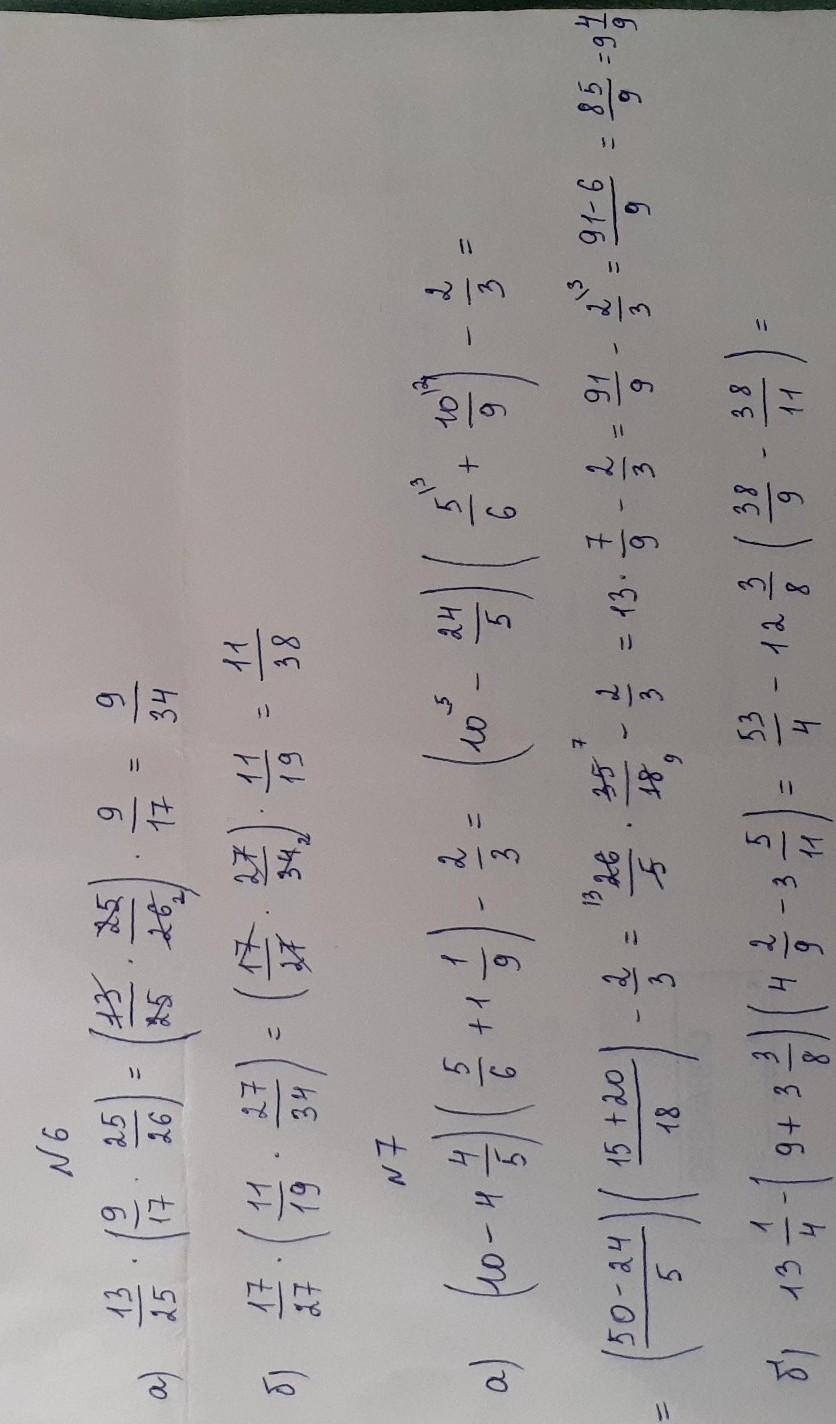 N6
а) 13/25 · (9/17 · 25/26) = (13/25 · 25/26 2) · 9/17 = 9/34
б) 17/27 · (11/19 · 27/34) = (17/27 · 27/34 2) · 11/19 = 11/38
N7
а) (10 - 4 4/5)(5/6 + 1 1/9) - 2/3 = (10 \5 - 24/5)(5/6 \3 + 10/9 \2) - 2/3 =
= (50 - 24/5)(15 + 20/18) - 2/3 = 13 26/5 · 35 7/18 9 - 2/3 = 13 · 7/9 - 2/3 = 91/9 - 2/3 \3 = 91-6/9 = 85/9 = 9 4/9
б) 13 1/4 - (9 + 3 3/8)(4 2/9 - 3 5/11) = 53/4 - 12 3/8 (38/9 - 38/11) =